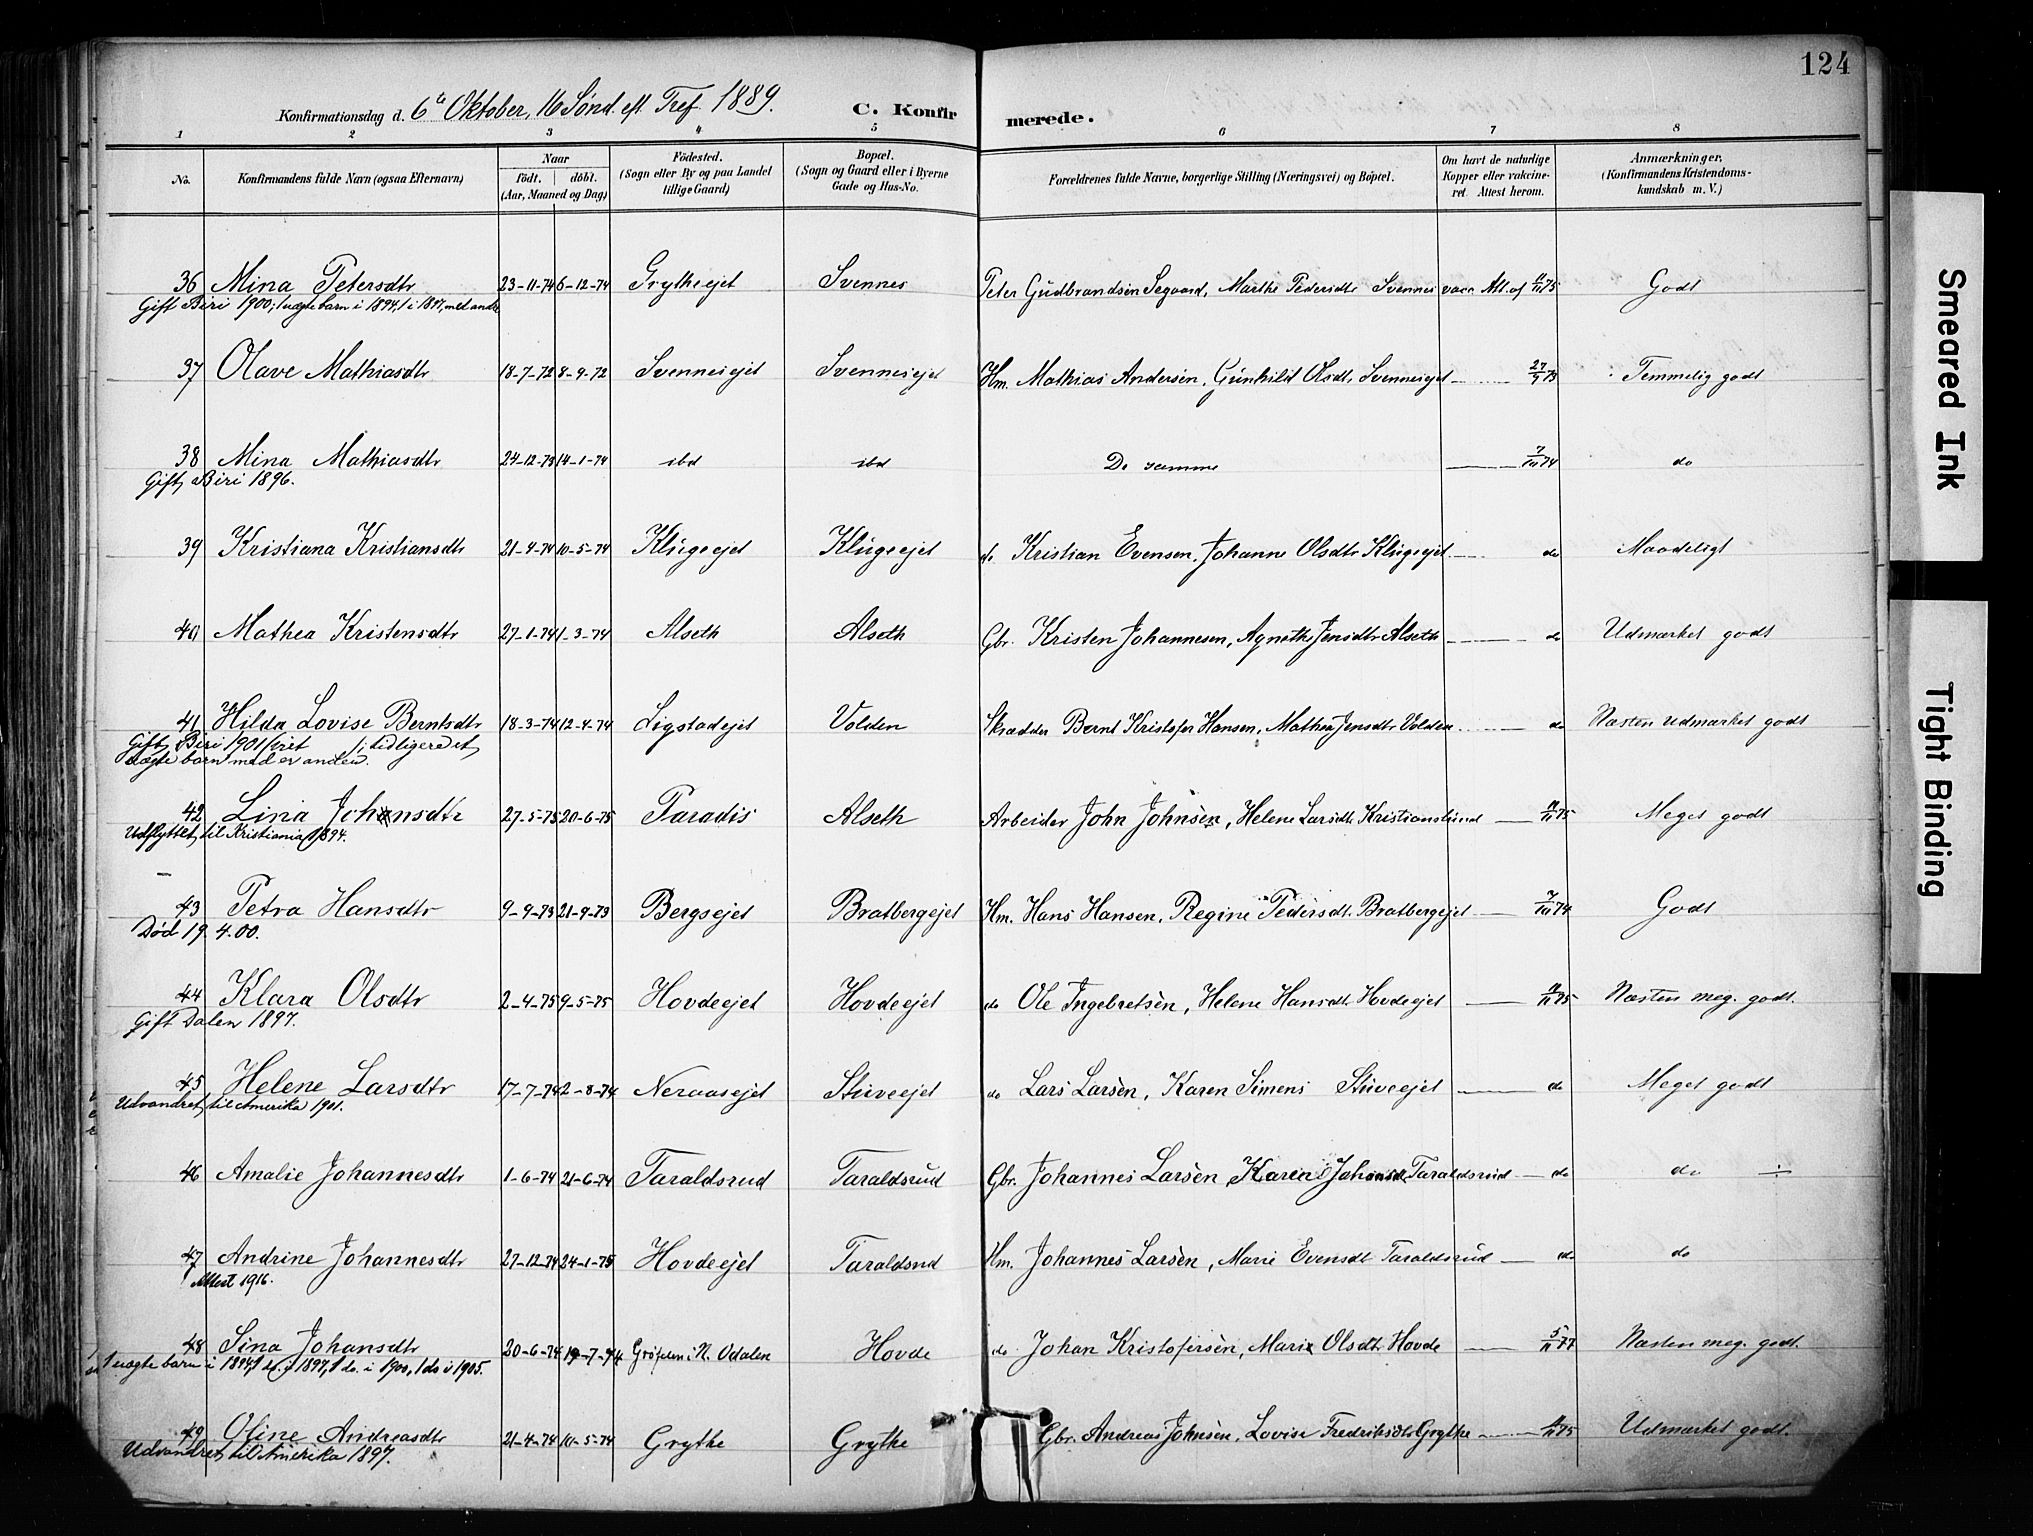 124
Konfirmationsdag d. 6te Oktober, 16 Sønd. eft. Tref. 1889. C. Konfirmerede.
1 2 3 4 5 6 7 8
No. Konfirmandens fulde Navn (ogsaa Efternavn) Naar födt. döbt. (Aar, Maaned og Dag) Födested. (Sogn eller By og paa Landet tillige Gaard) Bopæl. (Sogn og Gaard eller i Byerne Gade og Hus-No. Forældrenes fulde Navne, borgerlige Stilling (Næringsvei) og Bopæl. Om havt de naturlige Kopper eller vakcineret. Attest herom. Anmærkninger. (Konfirmandens Kristendomskundskab m. V.)
36 Mina Petersdtr 23-11-74 6-12-74 Grytheejet Svennes Peter Gudbrandsen Segaard, Marthe Pedersdtr Svennes vacc. Att. af 75 Godt
Gift Biri 1900; 1 uægte barn i 1894, 1 i 1897, med andre
37 Olave Mathiasdtr 18-7-72 8-9-72 Svennesejet Svennesejet Hm. Mathias Andersen, Gunhild Olsdtr Svennesejet 73 Temmelig godt
38 Mina Mathiasdtr 24-12-73 14-1-74 ibd ibd De samme 74 do
Gift, Biri 1896.
39 Kristiana Kristiansdtr 21-4-74 10-5-74 Klugeejet Klugeejet do Kristian Evensen, Johanne Olsdtr Klugeejet do Maadeligt
40 Mathea Kristensdtr 27-1-74 1-3-74 Alseth Alseth Gbr. Kristen Johannesen, Agnethe Jensdtr Alseth do Udmærket godt
41 Hilda Lovise Berntsdtr 18-3-74 12-4-74 Sigstadejet Volden Skrædder Bernt Kristofer Hansen, Mathea Jensdtr Volden do Næsten udmærket godt
Gift, Biri 1901 /: tidligere et
uægte barn med en anden.
42 Lina Johnsdtr 27-5-75 20-6-75 Paradis Alseth Arbeider John Johnsen, Helene Larsdtr Kristianslund 75 Meget godt
Udflyttet, til Kristiania 1894.
43 Petra Hansdtr 9-9-73 21-9-73 Bergsejet Bratbergejet Hm. Hans Hansen, Regine Pedersdtr. Bratbergejet 74 Godt
Død 19. 4. 00.
44 Klara Olsdtr 2-4-75 9-5-75 Hovdeejet Hovdeejet do Ole Ingebretsen, Helene Hansdtr. Hovdeejet 75 Næsten meg. godt.
Gift Dalen 1897.
45 Helene Larsdtr 17-7-74 2-8-74 Neraasejet Stuveejet do Lars Larsen, Karen Simens Stuveejet do Meget godt
Udvandret, til Amerika 1901.
46 Amalie Johannesdtr 1-6-74 21-6-74 Taraldsrud Taraldsrud Gbr. Johannes Larsen, Karen Johansdtr Taraldsrud do do ÷
47 Andrine Johannesdtr 27-12-74 24-1-75 Hovdeejet Taraldsrud Hm. Johannes Larsen, Marie Evensdtr Taraldsrud do do
Attest 1916.
48 Sina Johansdtr 20-6-74 19-7-74 i N. Odalen Hovde do Johan Kristofersen, Marie Olsdtr. Hovde 77 Næsten meg. godt.
1 uægte barn i 1894, 1 i 1897, 1 do. i 1900, 1 do i 1905.
49 Oline Andreasdtr 21-4-74 10-5-74 Grythe Grythe Gbr. Andreas Johnsen, Lovise Fredriksdtr Grythe 75 Udmærket godt.
Udvandret, til Amerika 1897.
Smeared Ink
Tight Binding